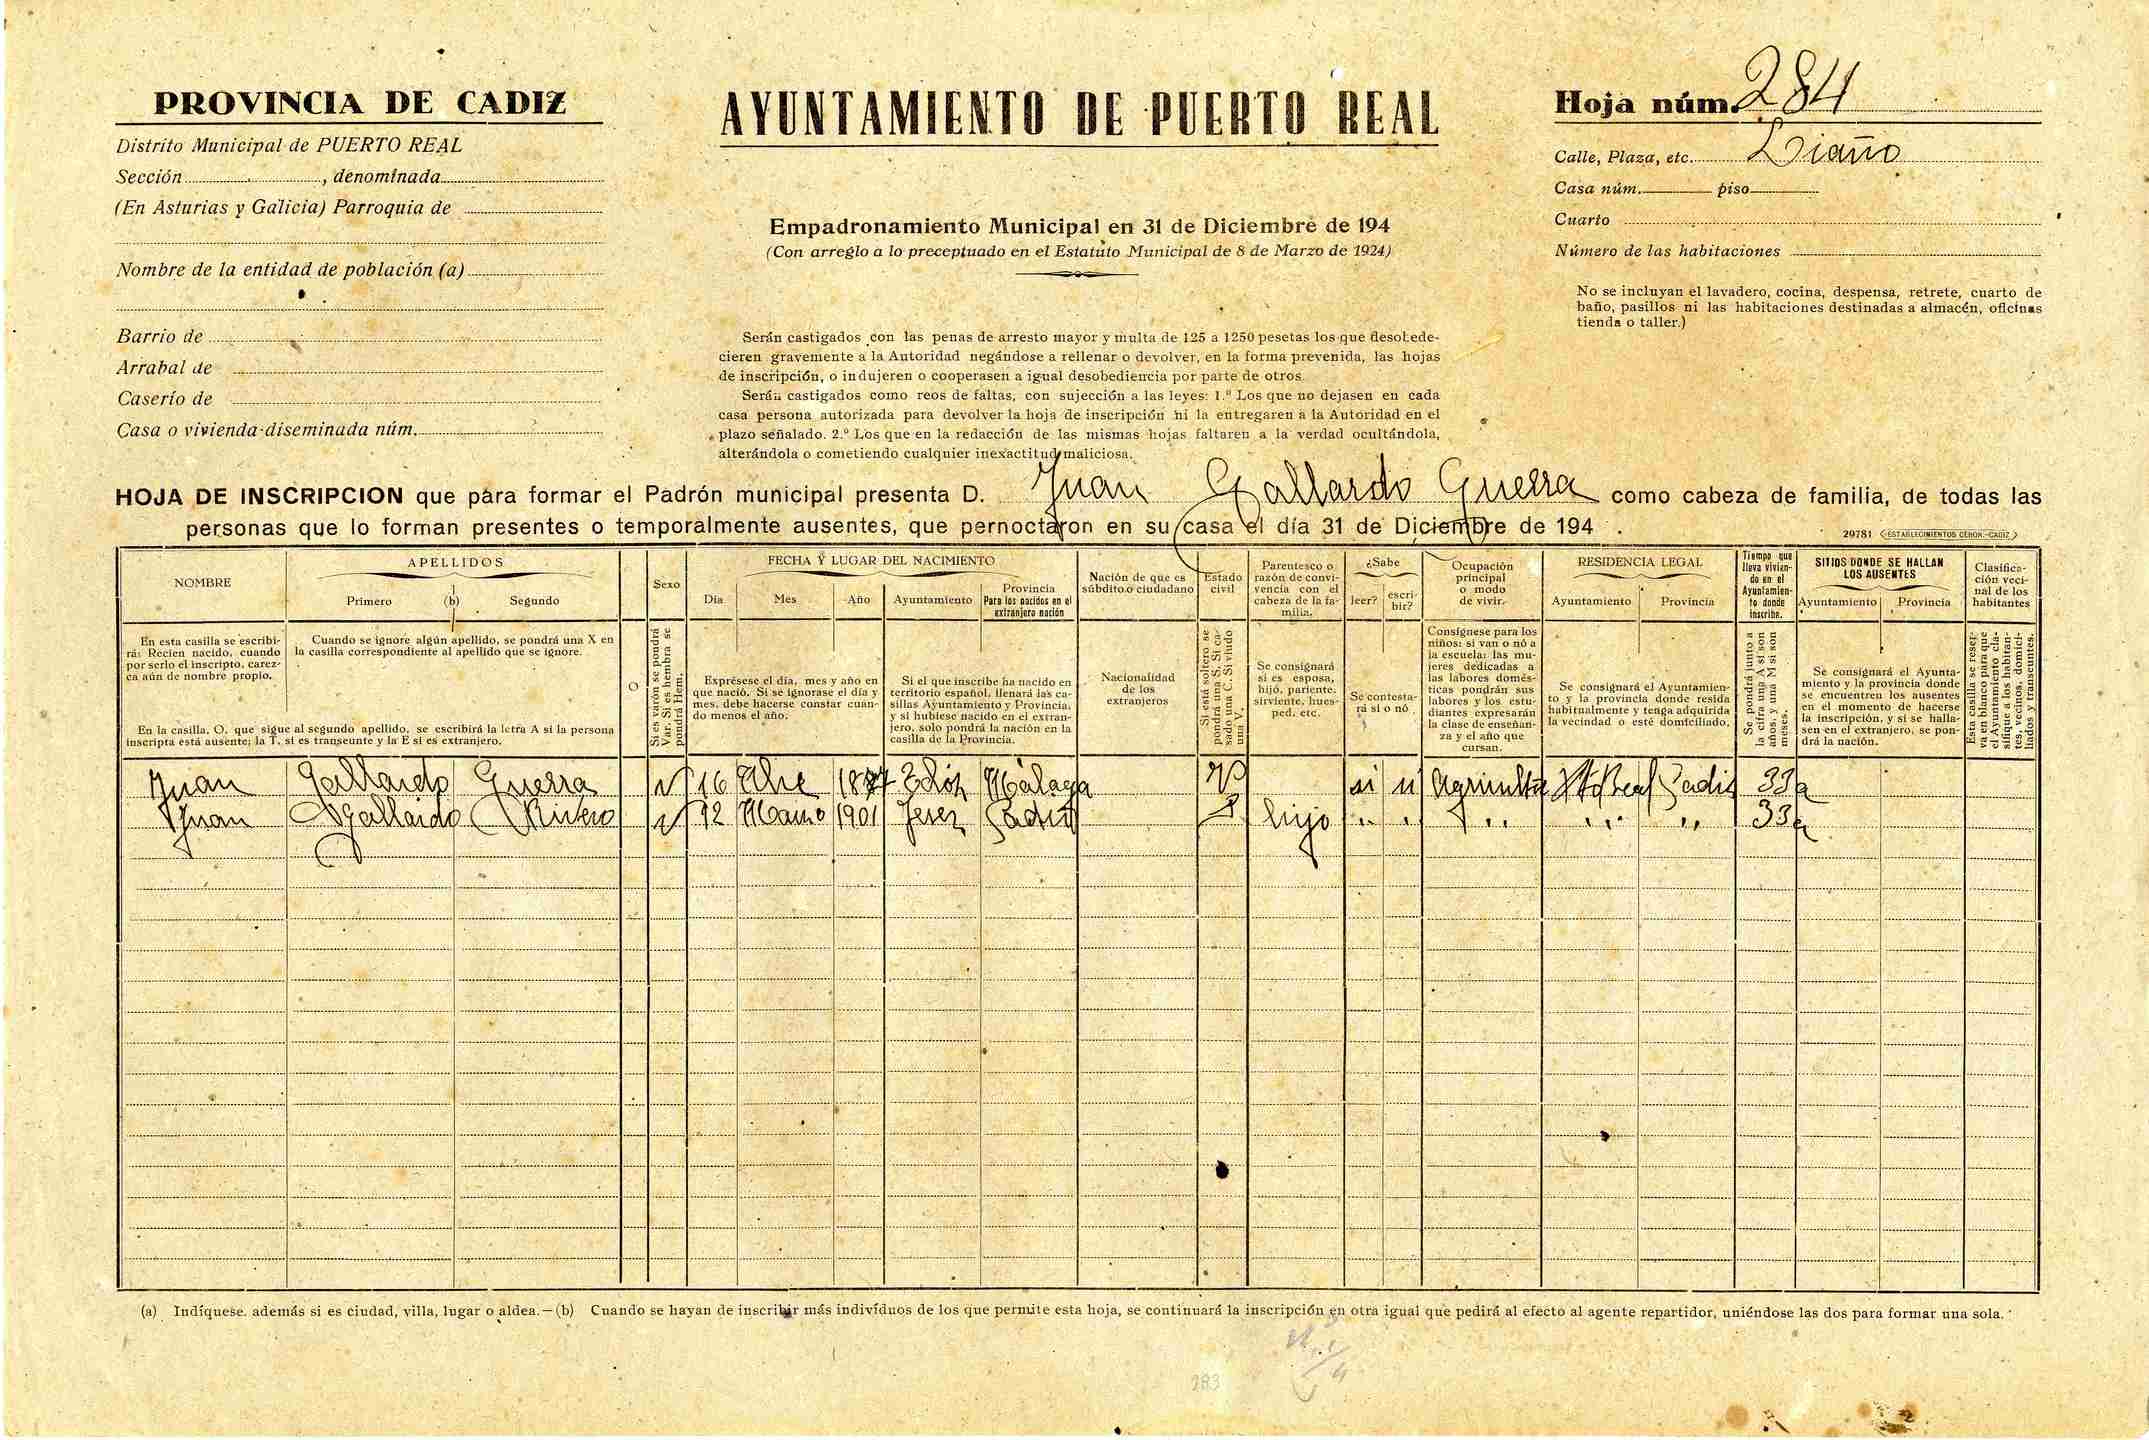 PROVINCIA DE CADIZ
Distrito Municipal de PUERTO REAL
Sección , denominada
(En Asturias y Galicia) Parroquia de
Nombre de la entidad de población (a)
Barrio de
Arrabal de
Caserío de
Casa o vivienda diseminada núm.
AYUNTAMIENTO DE PUERTO REAL
Empadronamiento Municipal en 31 de Diciembre de 194
(Con arreglo a lo preceptuado en el Estatuto Municipal de 8 de Marzo de 1924)
Serán castigados con las penas de arresto mayor y multa de 125 a 1250 pesetas los que desobede-
cieren gravemente a la Autoridad negándose a rellenar o devolver, en la forma prevenida, las hojas
de inscripción, o indujeren o cooperasen a igual desobediencia por parte de otros.
Serán castigados como reos de faltas, con sujección a las leyes: 1.º Los que no dejasen en cada
casa persona autorizada para devolver la hoja de inscripción ni la entregaren a la Autoridad en el
plazo señalado. 2.º Los que en la redacción de las mismas hojas faltaren a la verdad ocultándola,
alterándola o cometiendo cualquier inexactitud maliciosa.
Hoja núm. 284
Calle, Plaza, etc. Liaño
Casa núm. piso
Cuarto
Número de las habitaciones
No se incluyan el lavadero, cocina, despensa, retrete, cuarto de
baño, pasillos ni las habitaciones destinadas a almacén, oficinas
tienda o taller.)
HOJA DE INSCRIPCION que para formar el Padrón municipal presenta D. Juan Gallardo Guerra como cabeza de familia, de todas las
personas que lo forman presentes o temporalmente ausentes, que pernoctaron en su casa el día 31 de Diciembre de 194 .
29781 ESTABLECIMIENTOS CERON.-CADIZ
NOMBRE
En esta casilla se escribi-
rá: Recien nacido, cuando
por serlo el inscripto, carez-
ca aún de nombre propio.
APELLIDOS
Primero (b) Segundo
Cuando se ignore algún apellido, se pondrá una X en
la casilla correspondiente al apellido que se ignore.
En la casilla, O, que sigue al segundo apellido, se escribirá la letra A si la persona
inscripta está ausente; la T, si es transeunte y la E si es extranjero.
O
Sexo
Si es varón se pondrá
Var. Si es hembra se
pondrá Hem.
FECHA Y LUGAR DEL NACIMIENTO
Día Mes Año Ayuntamiento
Provincia
Para los nacidos en el
extranjero nación
Exprésese el día, mes y año en
que nació. Si se ignorase el día y
mes, debe hacerse constar cuan-
do menos el año.
Si el que inscribe ha nacido en
territorio español, llenará las ca-
sillas Ayuntamiento y Provincia,
y si hubiese nacido en el extran-
jero, solo pondrá la nación en la
casilla de la Provincia.
Nación de que es
súbdito o ciudadano
Nacionalidad
de los
extranjeros
Estado
civil
Si está soltero se
pondrá una S. Si ca-
sado una C. Si viudo
una V.
Parentesco o
razón de convi-
vencia con el
cabeza de la fa-
milia.
Se consignará
si es esposa,
hijó, pariente,
sirviente, hues-
ped, etc.
¿Sabe
leer? escri-
bir?
Se contesta-
rá si o nó
Ocupación
principal
o modo
de vivir.
Consígnese para los
niños: si van o nó a
la escuela: las mu-
jeres dedicadas a
las labores domés-
ticas pondrán sus
labores y los estu-
diantes expresarán
la clase de enseñan-
za y el año que
cursan.
RESIDENCIA LEGAL
Ayuntamiento Provincia
Se consignará el Ayuntamien-
to y la provincia donde resida
habitualmente y tenga adquirida
la vecindad o esté domiciliado.
Tiempo que
lleva vivien-
do en el
Ayuntamien-
to donde
inscribe.
Se pondrá junto a
la cifra una A si son
años, y una M si son
meses.
SITIOS DONDE SE HALLAN
LOS AUSENTES
Ayuntamiento Provincia
Se consignará el Ayunta-
miento y la provincia donde
se encuentren los ausentes
en el momento de hacerse
la inscripción, y si se halla-
sen en el extranjero, se pon-
drá la nación.
Clasifica-
ción veci-
nal de los
habitantes
Esta casilla se reser-
va en blanco para que
el Ayuntamiento cla-
sifique a los habitan-
tes, vecinos, domici-
liados y transeuntes.
Juan Gallardo Guerra V 16 Málaga V si si Pto Real Cadiz 33 a
Juan Gallardo Rivero V 12 1901 Jerez Cadiz S hijo " " " " " 33 a
(a) Indíquese. además si es ciudad, villa, lugar o aldea.—(b) Cuando se hayan de inscribir más indivíduos de los que permite esta hoja, se continuará la inscripción en otra igual que pedirá al efecto al agente repartidor, uniéndose las dos para formar una sola.
283